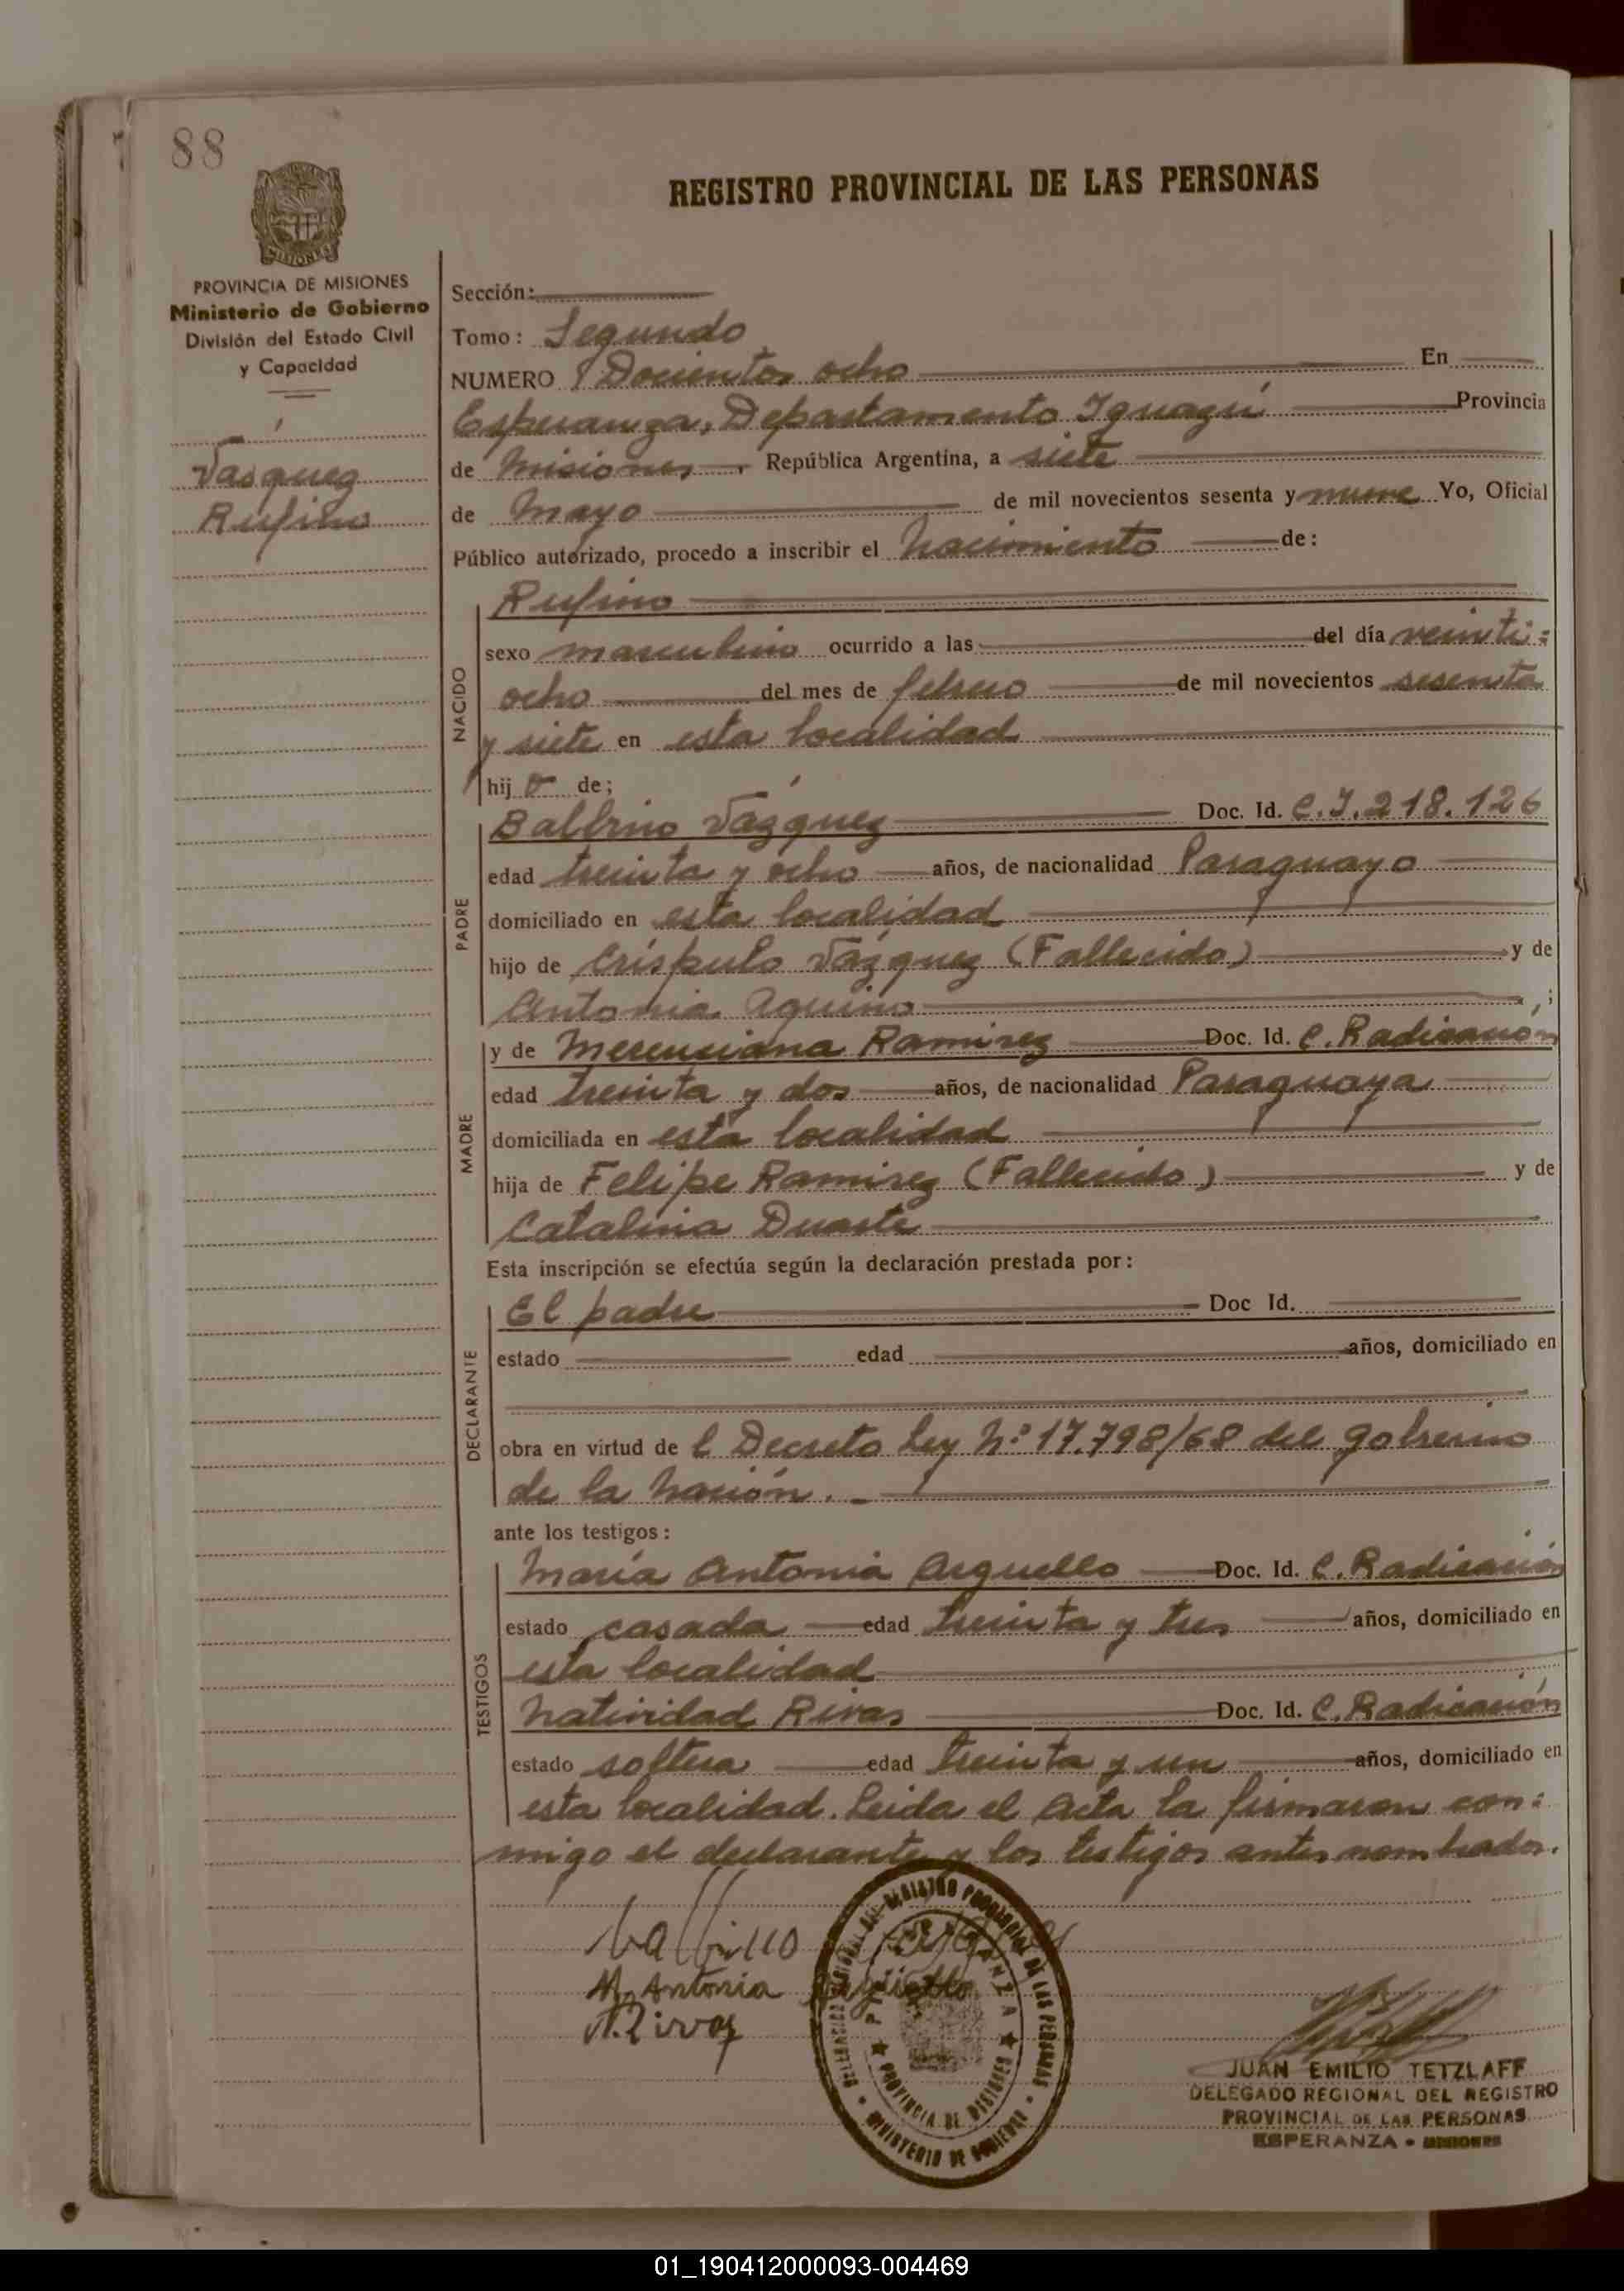 88
REGISTRO PROVINCIAL DE LAS PERSONAS
MISIONES
PROVINCIA DE MISIONES
Ministerio de Gobierno
División del Estado Civil
y Capacidad
Vásquez
Rufino
Sección:
Tomo: Segundo
NUMERO Docientos ocho En
Esperanza, Departamento Iguazú Provincia
de Misiones, República Argentina, a siete
de Mayo de mil novecientos sesenta y nueve Yo, Oficial
Público autorizado, procedo a inscribir el Nacimiento de:
NACIDO
Rufino
sexo masculino ocurrido a las del día veinti=
ocho del mes de febrero de mil novecientos sesenta
y siete en esta localidad
hijo de;
PADRE
Balbino Vázquez Doc. Id. C.I. 218.126
edad treinta y ocho años, de nacionalidad Paraguayo
domiciliado en esta localidad
hijo de Críspulo Vázquez (Fallecido) y de
Antonia Aquino ;
MADRE
y de Merenciana Ramirez Doc. Id. C. Radicación
edad treinta y dos años, de nacionalidad Paraguaya
domiciliada en esta localidad
hija de Felipe Ramirez (Fallecido) y de
Catalina Duarte
Esta inscripción se efectúa según la declaración prestada por:
DECLARANTE
El padre Doc Id.
estado edad años, domiciliado en
obra en virtud de l Decreto Ley N° 17.798/68 del gobierno
de la Nación.
ante los testigos:
TESTIGOS
María Antonia Arguello Doc. Id. C. Radicación
estado casada edad treinta y tres años, domiciliado en
esta localidad
Natividad Rivas Doc. Id. C. Radicación
estado soltera edad treinta y un años, domiciliado en
esta localidad. Leida el Acta la firmaron con=
migo el declarante y los testigos antes nombrados.
Balbino
M. Antonia Arguello
N. Rivas
REGISTRO PROVINCIAL DE LAS PERSONAS
PROVINCIA DE MISIONES
MINISTERIO DE GOBIERNO
JUAN EMILIO TETZLAFF
DELEGADO REGIONAL DEL REGISTRO
PROVINCIAL DE LAS PERSONAS
ESPERANZA - MISIONES
01_190412000093-004469